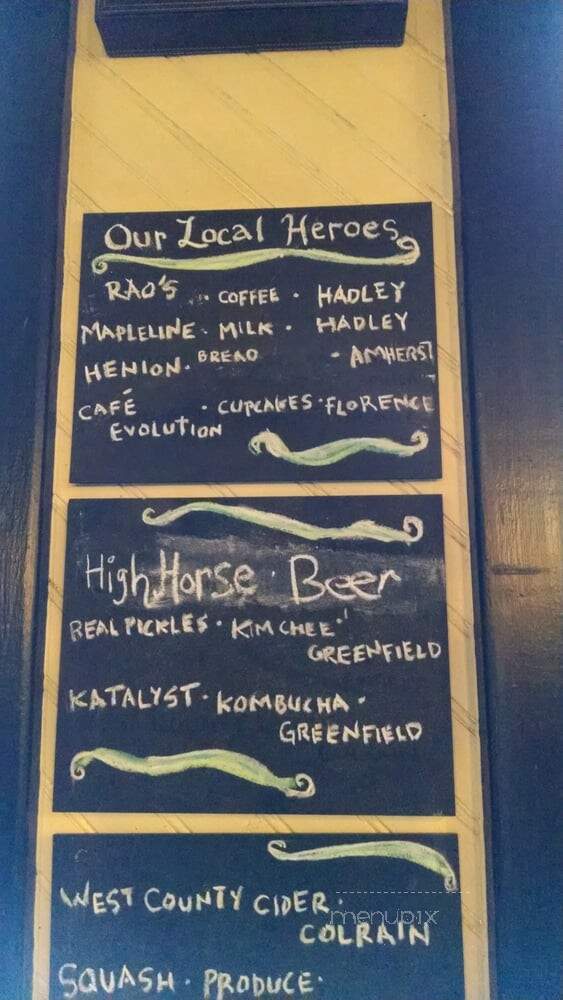 Our Local Heroes
RAO'S · COFFEE · HADLEY
MAPLELINE · MILK · HADLEY
HENION · BREAD · AMHERST
CAFÉ · CUPCAKES · FLORENCE
EVOLUTION
High Horse · Beer
REAL PICKLES · KIM CHEE ·
GREENFIELD
KATALYST · KOMBUCHA ·
GREENFIELD
WEST COUNTY CIDER ·
COLRAIN
menupix
SQUASH · PRODUCE ·